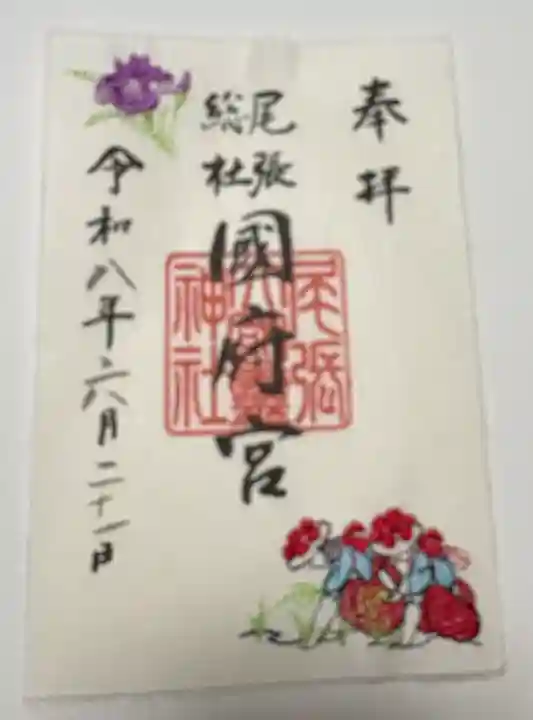 奉拝
尾張
総社
國府宮
尾張
大國霊
神社
令和八年六月二十一日